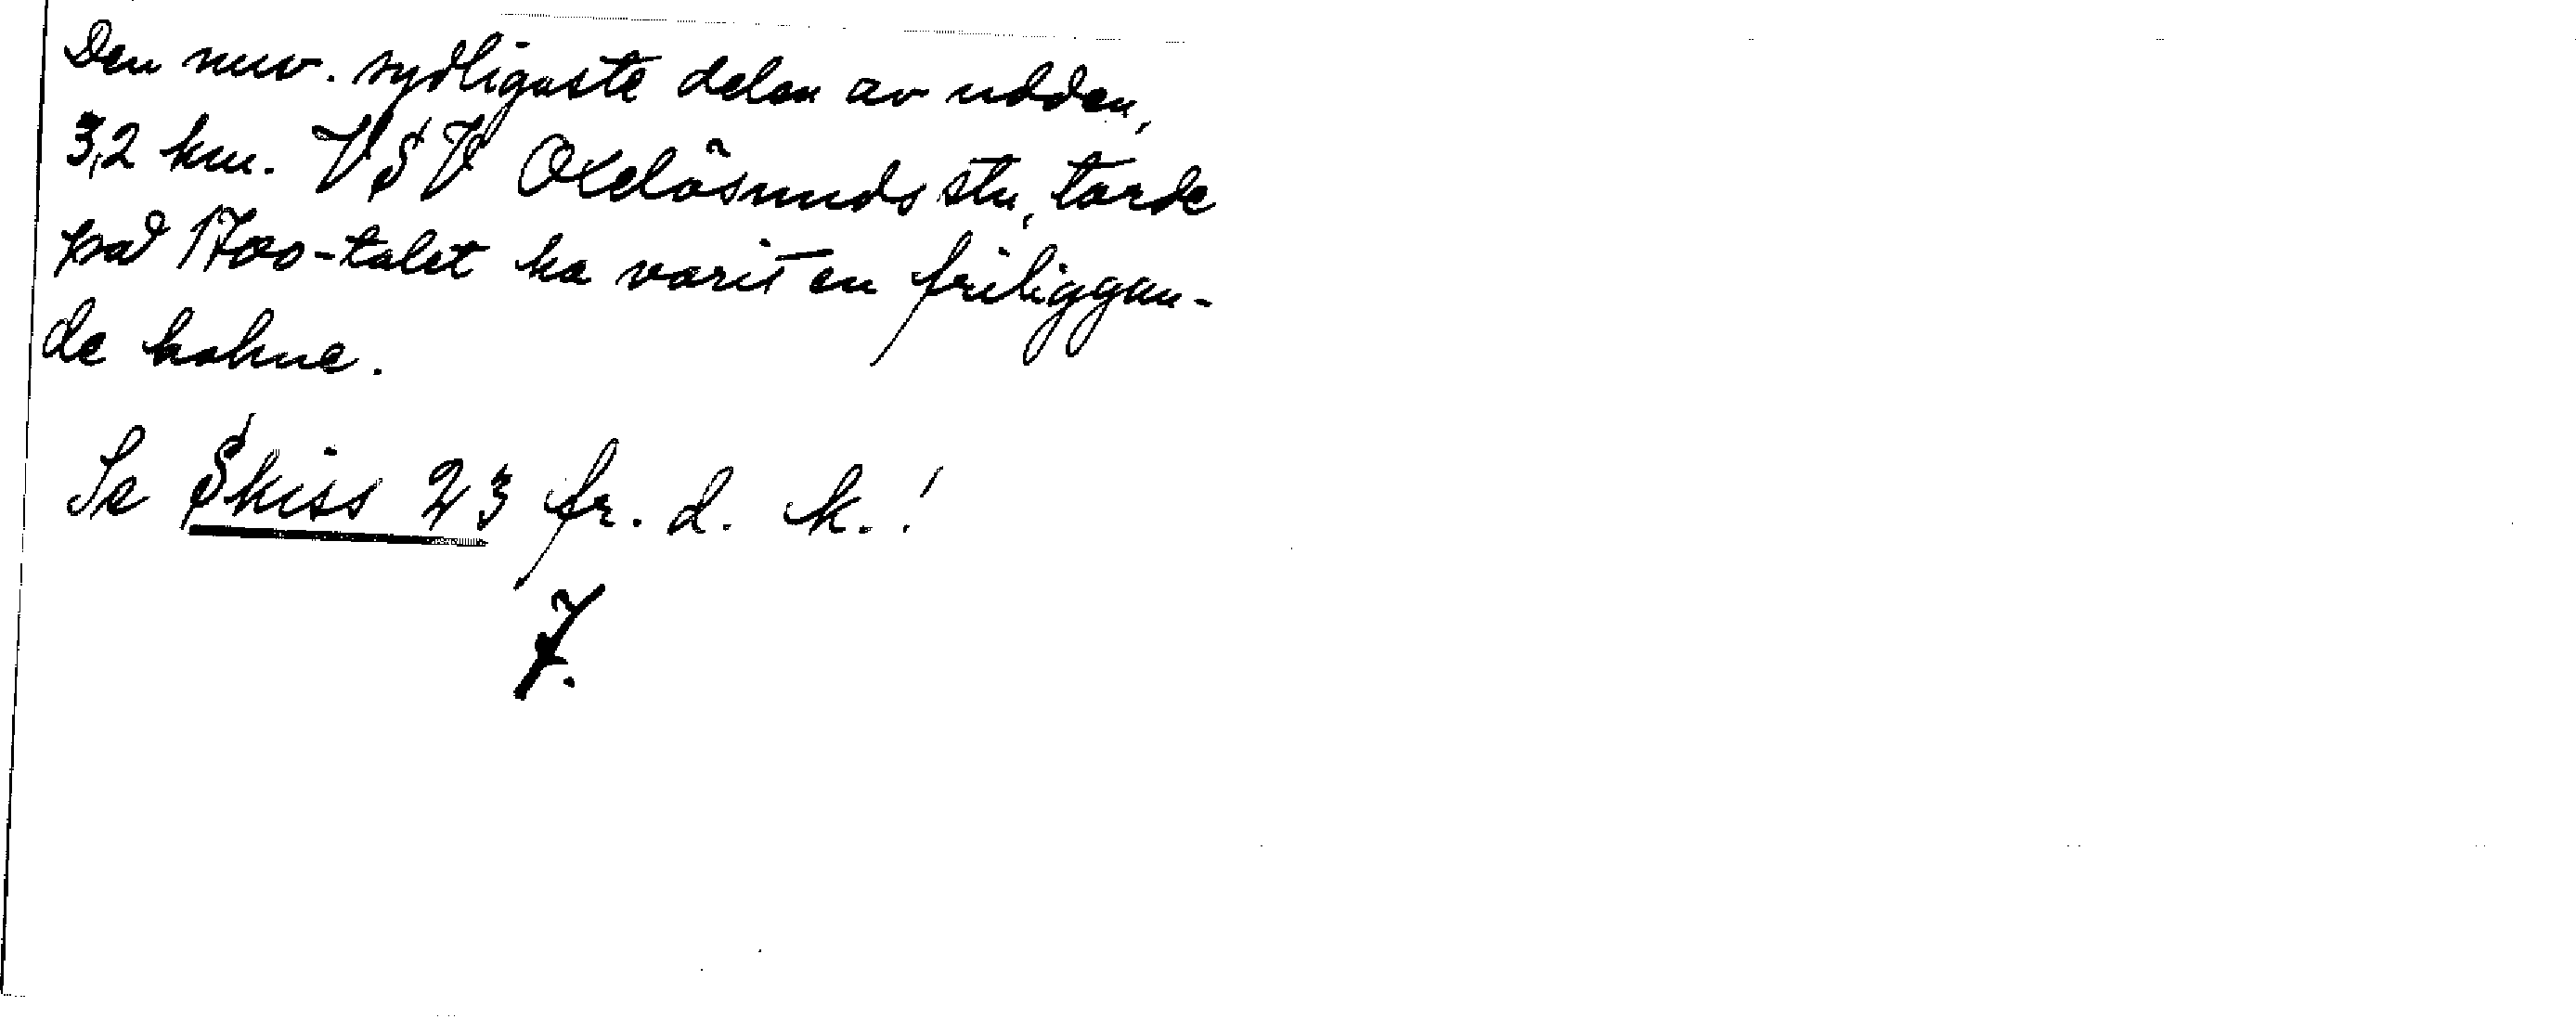 Den nuv. sydligaste delen av udden,
3,2 km. VSV Oxelösunds stn, torde
på 1700-talet ha varit en friliggan-
de holme.
Se Skiss 23 fr. d. k.!
7.